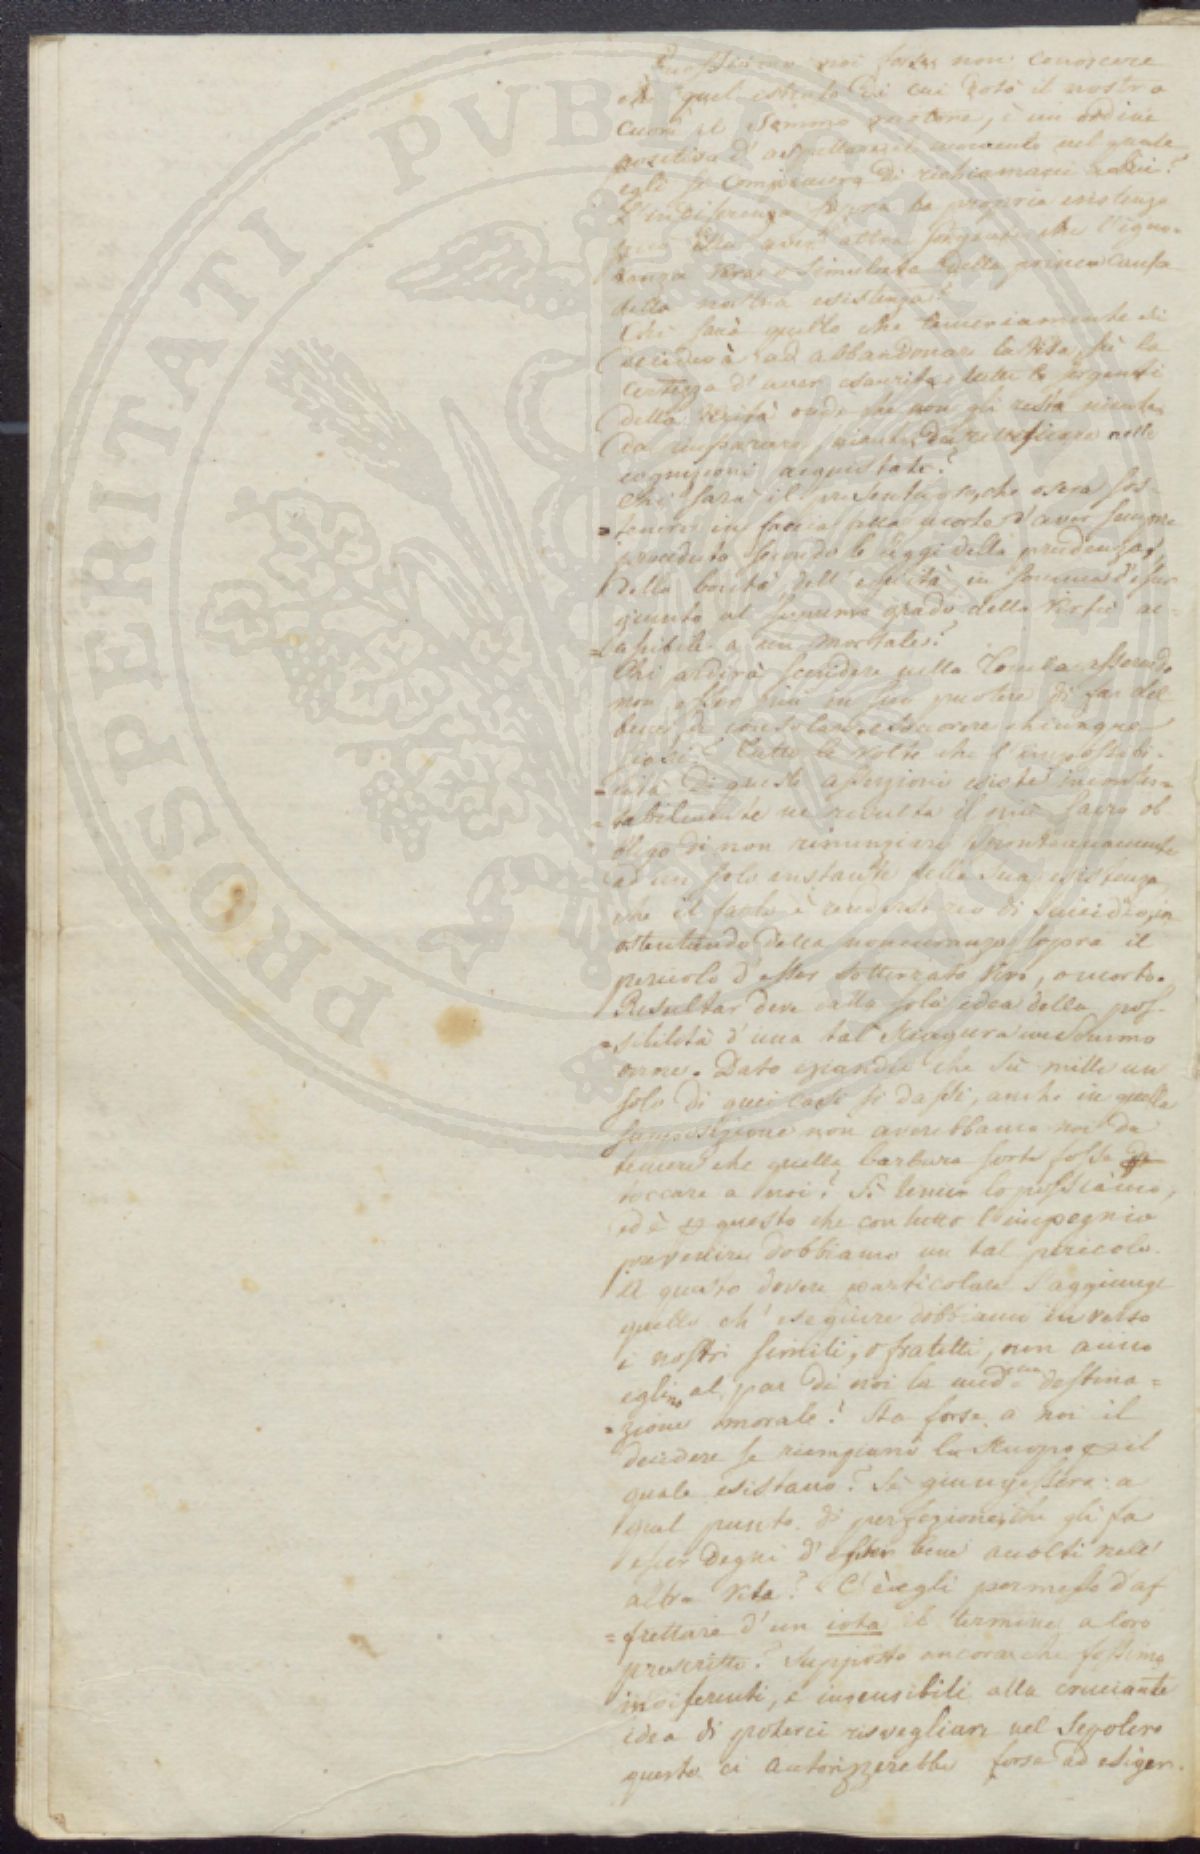 noi forse non conoscere
che quel istinto di cui dotò il nostro
cuore il Sommo motore, è un ordine
positivo d'aspettare il momento nel quale
egli si compiacerà di richiamarci a Lui?
L'indiferenza sopra la propria esistenza
aver altra sorgente che l'igno-
ranza vera o simulata della prima Causa
della nostra esistenza?
Chi sarà quello che temeriamente si
deciderà ad abbandonare la Vita, sù la
certezza d'aver esaurite tutte le sorgenti
della verità onde che non gli resta niente
da imparare, niente da retificare nelle
cognizioni acquistate?
Chi sarà il presentuoso, che oserà sos-
=tenere in faccia alla morte d'aver sempre
proceduto secondo le leggi della prudenza,
della bontà, dell'equità, in somma d'esser
giunto al supremo grado della Virtù ac=
=cessibile a un mortale?
Chi ardirà scendere nella Tomba essendo
non esser più in suo puotere di far del
bene, di consolare, e soccorere chiunque
siasi? Tutte le volte che l'impossibi-
=lità di queste assersioni esiste incontes=
=tabilmente ne risulta il più sacro ob-
bligo di non rinunziare spontaneamente
ad un solo instante della sua esistenza
che il farlo è rendersi reo di suicidio, in
ostentando della noncuranza sopra il
pericolo d'esser sotterrato vivo, o morto.
Resultar deve dalla sola idea della pos-
=sibilità d'una tal sciagura
orrore. Dato eziandio che sù mille un
solo di quei casi si dassi, anche in quella
supposizione non averebbamo noi da
temere che quella barbara sorte fosse di
toccare a noi? Sì temer lo possiamo,
ed è per questo che con tutto l'impegnio
prevenire dobbiamo un tal pericolo.
A questo dovere particolare s'aggiunge
quello ch'eseguire dobbiamo in verso
i nostri simili, o fratelli, non anno
eglino al par di noi la med.ma destina=
=zione morale? Sta forse a noi il
decidere se riempiano lo scuopo per il
quale esistano? Se giungessero a
qual punto di perfezione, che gli fa
esser degni d'esser bene accolti nell'
altra Vita? C'è egli permesso d'af
=frettare d'un iota il termine a loro
prescritto? Supposto ancora che fossimo
indiferenti, e insensibili alla cruciante
idea di poterci risvegliare nel Sepolcro
questo ci autorizzerebbe forse ad esiger
PROSPERITATI PUBLICAE